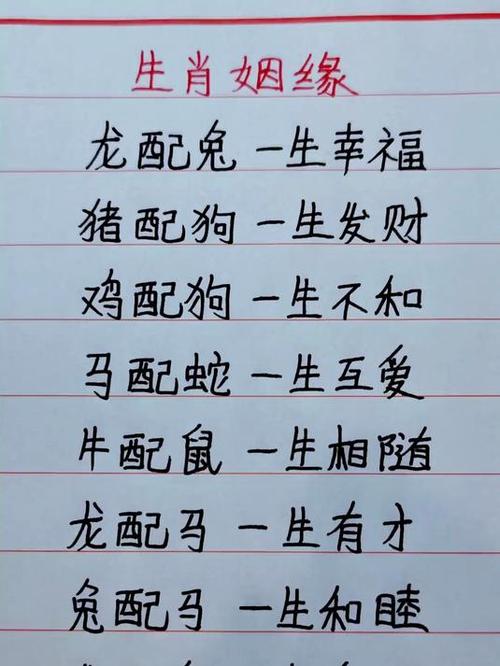 生肖姻缘
龙配兔 一生幸福
猪配狗 一生发财
鸡配狗 一生不和
马配蛇 一生互爱
牛配鼠 一生相随
龙配马 一生有才
兔配马 一生和睦